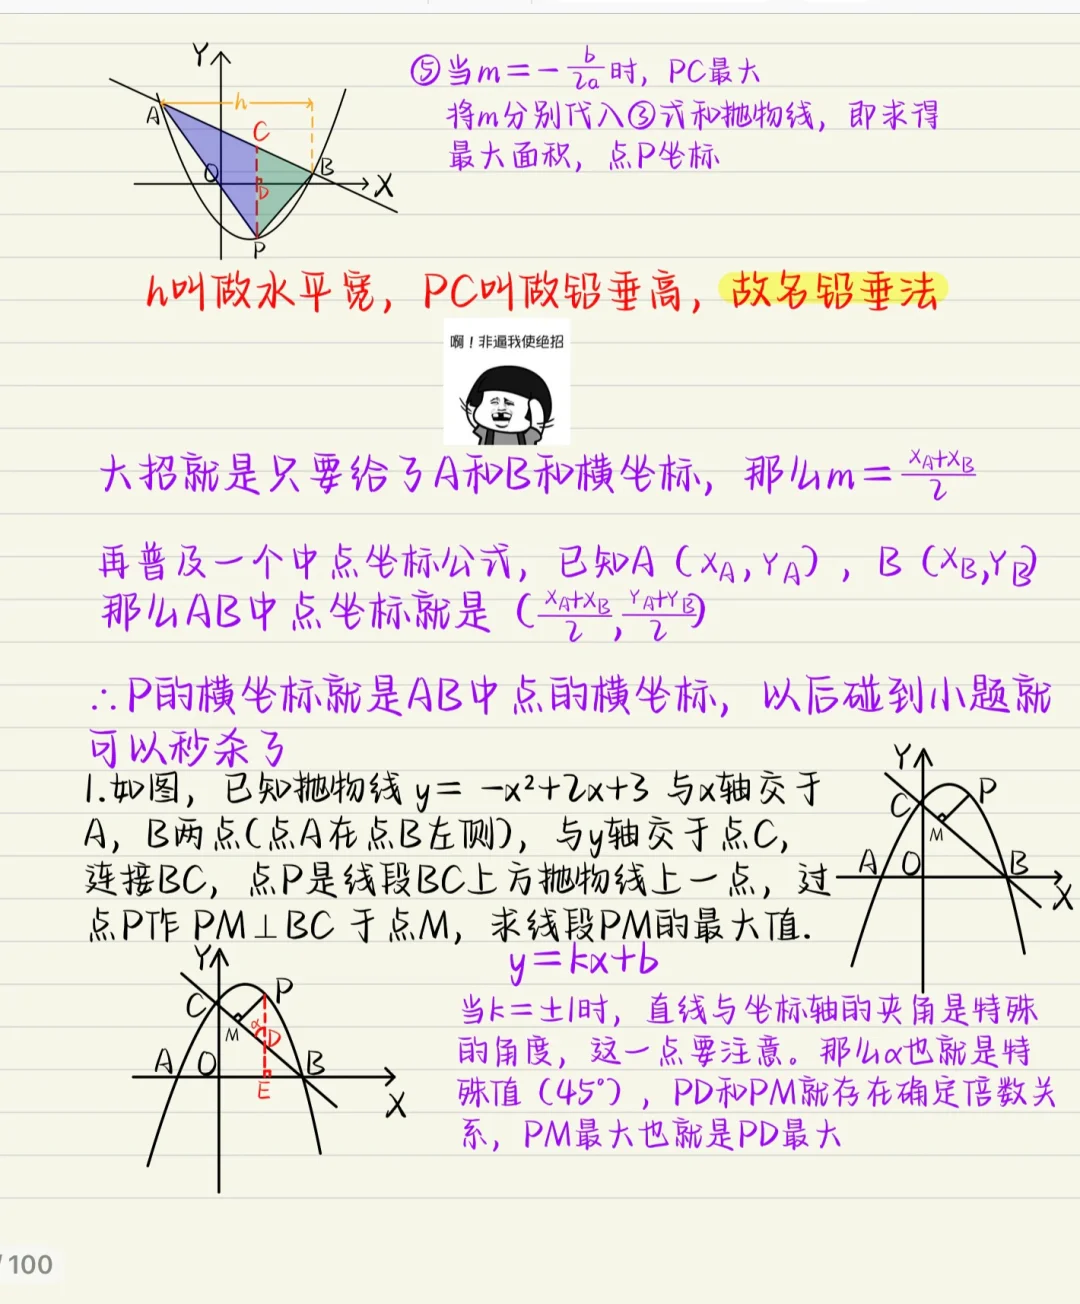 Y
h
A
C
⑤当m=-b/2a时，PC最大
将m分别代入③式和抛物线，即求得
最大面积，点P坐标
B
O
D
X
P
h叫做水平宽，PC叫做铅垂高，故名铅垂法
啊！非逼我使绝招
大招就是只要给了A和B和横坐标，那么m=(XA+XB)/2
再普及一个中点坐标公式，已知A（XA,YA），B（XB,YB）
那么AB中点坐标就是（(XA+XB)/2,(YA+YB)/2）
∴P的横坐标就是AB中点的横坐标，以后碰到小题就
可以秒杀了
1.如图，已知抛物线y=-x²+2x+3与x轴交于
A，B两点(点A在点B左侧)，与y轴交于点C，
连接BC，点P是线段BC上方抛物线上一点，过
点P作PM⊥BC于点M，求线段PM的最大值.
Y
C
P
M
A
O
B
X
Y
C
P
M
α
D
A
O
B
E
X
y=kx+b
当k=±1时，直线与坐标轴的夹角是特殊
的角度，这一点要注意。那么α也就是特
殊值（45°），PD和PM就存在确定倍数关
系，PM最大也就是PD最大
/100